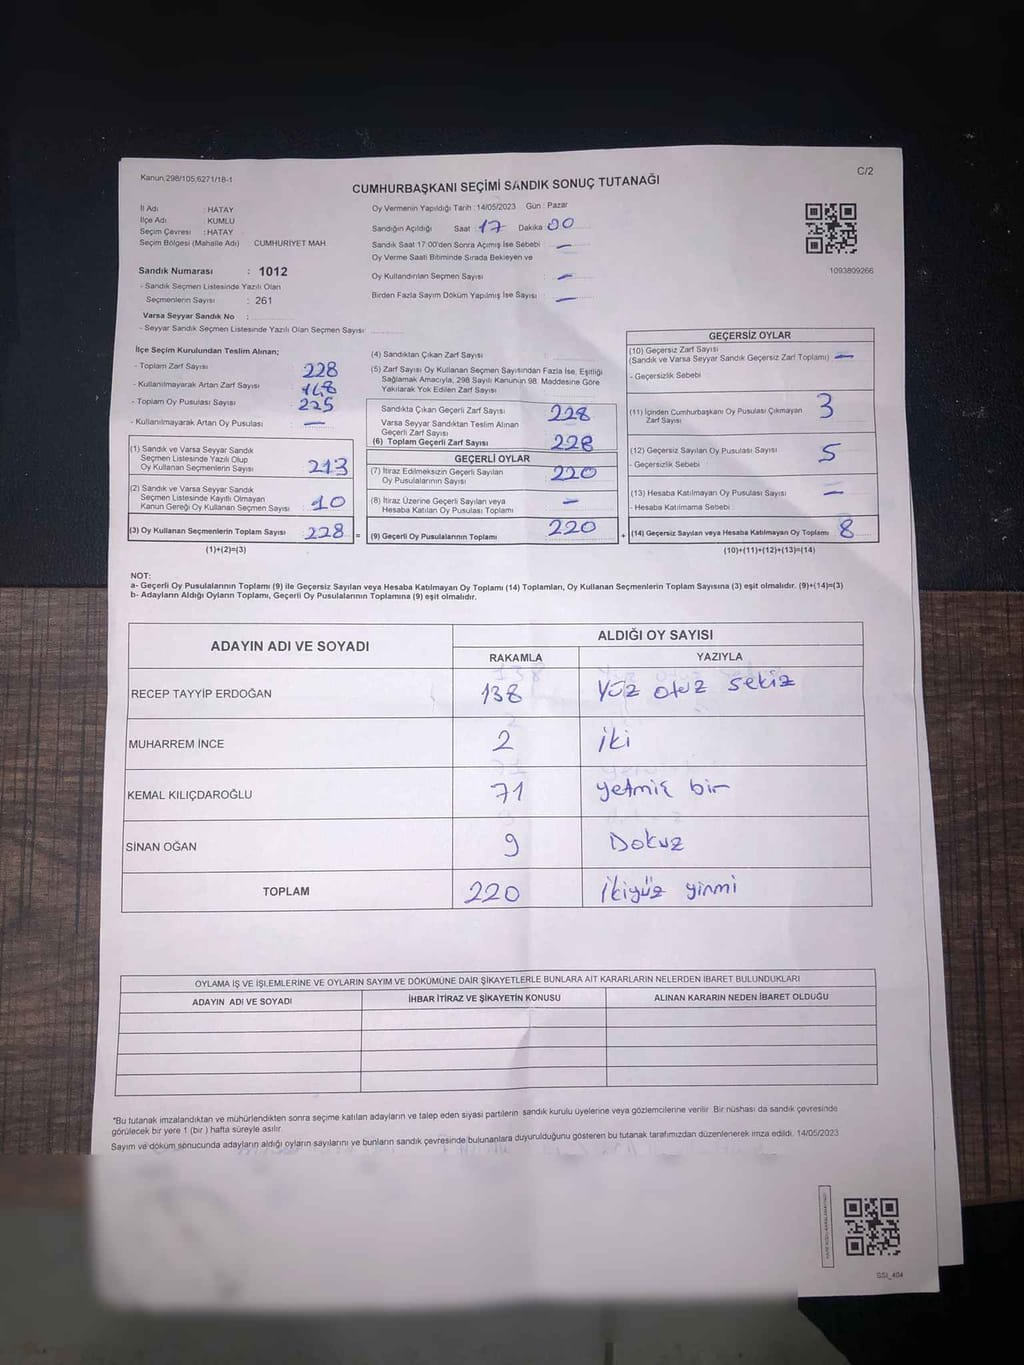 Kanun;298/105;6271/18-1
C/2
CUMHURBAŞKANI SEÇİMİ SANDIK SONUÇ TUTANAĞI
İl Adı : HATAY
İlçe Adı : KUMLU
Seçim Çevresi : HATAY
Seçim Bölgesi (Mahalle Adı) CUMHURIYET MAH
Oy Vermenin Yapıldığı Tarih : 14/05/2023 Gün : Pazar
Sandığın Açıldığı Saat : 17 Dakika : 00
Sandık Saat 17:00'den Sonra Açımış İse Sebebi : —
Oy Verme Saati Bitiminde Sırada Bekleyen ve
Oy Kullandırılan Seçmen Sayısı : —
Birden Fazla Sayım Döküm Yapılmış İse Sayısı : —
1093809266
Sandık Numarası : 1012
- Sandık Seçmen Listesinde Yazılı Olan
Seçmenlerin Sayısı : 261
Varsa Seyyar Sandık No :
- Seyyar Sandık Seçmen Listesinde Yazılı Olan Seçmen Sayısı
İlçe Seçim Kurulundan Teslim Alınan;
- Toplam Zarf Sayısı 228
- Kullanılmayarak Artan Zarf Sayısı
- Toplam Oy Pusulası Sayısı 225
- Kullanılmayarak Artan Oy Pusulası —
(1) Sandık ve Varsa Seyyar Sandık
Seçmen Listesinde Yazılı Olup
Oy Kullanan Seçmenlerin Sayısı 213
(2) Sandık ve Varsa Seyyar Sandık
Seçmen Listesinde Kayıtlı Olmayan
Kanun Gereği Oy Kullanan Seçmen Sayısı 10
(3) Oy Kullanan Seçmenlerin Toplam Sayısı 228
(1)+(2)=(3)
(4) Sandıktan Çıkan Zarf Sayısı
(5) Zarf Sayısı Oy Kullanan Seçmen Sayısından Fazla İse, Eşitliği
Sağlamak Amacıyla, 298 Sayılı Kanunun 98. Maddesine Göre
Yakılarak Yok Edilen Zarf Sayısı
Sandıkta Çıkan Geçerli Zarf Sayısı 228
Varsa Seyyar Sandıktan Teslim Alınan
Geçerli Zarf Sayısı
(6) Toplam Geçerli Zarf Sayısı 228
GEÇERLİ OYLAR
(7) İtiraz Edilmeksizin Geçerli Sayılan
Oy Pusulalarının Sayısı 220
(8) İtiraz Üzerine Geçerli Sayılan veya
Hesaba Katılan Oy Pusulası Toplamı —
= (9) Geçerli Oy Pusulalarının Toplamı 220
GEÇERSİZ OYLAR
(10) Geçersiz Zarf Sayısı
(Sandık ve Varsa Seyyar Sandık Geçersiz Zarf Toplamı) —
- Geçersizlik Sebebi
(11) İçinden Cumhurbaşkanı Oy Pusulası Çıkmayan
Zarf Sayısı 3
(12) Geçersiz Sayılan Oy Pusulası Sayısı 5
- Geçersizlik Sebebi
(13) Hesaba Katılmayan Oy Pusulası Sayısı —
- Hesaba Katılmama Sebebi
+ (14) Geçersiz Sayılan veya Hesaba Katılmayan Oy Toplamı 8
(10)+(11)+(12)+(13)=(14)
NOT:
a- Geçerli Oy Pusulalarının Toplamı (9) ile Geçersiz Sayılan veya Hesaba Katılmayan Oy Toplamı (14) Toplamları, Oy Kullanan Seçmenlerin Toplam Sayısına (3) eşit olmalıdır. (9)+(14)=(3)
b- Adayların Aldığı Oyların Toplamı, Geçerli Oy Pusulalarının Toplamına (9) eşit olmalıdır.
ADAYIN ADI VE SOYADI
ALDIĞI OY SAYISI
RAKAMLA YAZIYLA
RECEP TAYYİP ERDOĞAN 138 Yüz otuz sekiz
MUHARREM İNCE 2 iki
KEMAL KILIÇDAROĞLU 71 yetmiş bir
SİNAN OĞAN 9 Dokuz
TOPLAM 220 ikiyüz yirmi
OYLAMA İŞ VE İŞLEMLERİNE VE OYLARIN SAYIM VE DÖKÜMÜNE DAİR ŞİKAYETLERLE BUNLARA AİT KARARLARIN NELERDEN İBARET BULUNDUKLARI
ADAYIN ADI VE SOYADI İHBAR İTİRAZ VE ŞİKAYETİN KONUSU ALINAN KARARIN NEDEN İBARET OLDUĞU
*Bu tutanak imzalandıktan ve mühürlendikten sonra seçime katılan adayların ve talep eden siyasi partilerin sandık kurulu üyelerine veya gözlemcilerine verilir. Bir nüshası da sandık çevresinde
görülecek bir yere 1 (bir ) hafta süreyle asılır.
Sayım ve döküm sonucunda adayların aldığı oyların sayılarını ve bunların sandık çevresinde bulunanlara duyurulduğunu gösteren bu tutanak tarafımızdan düzenlenerek imza edildi. 14/05/2023
SSI_404